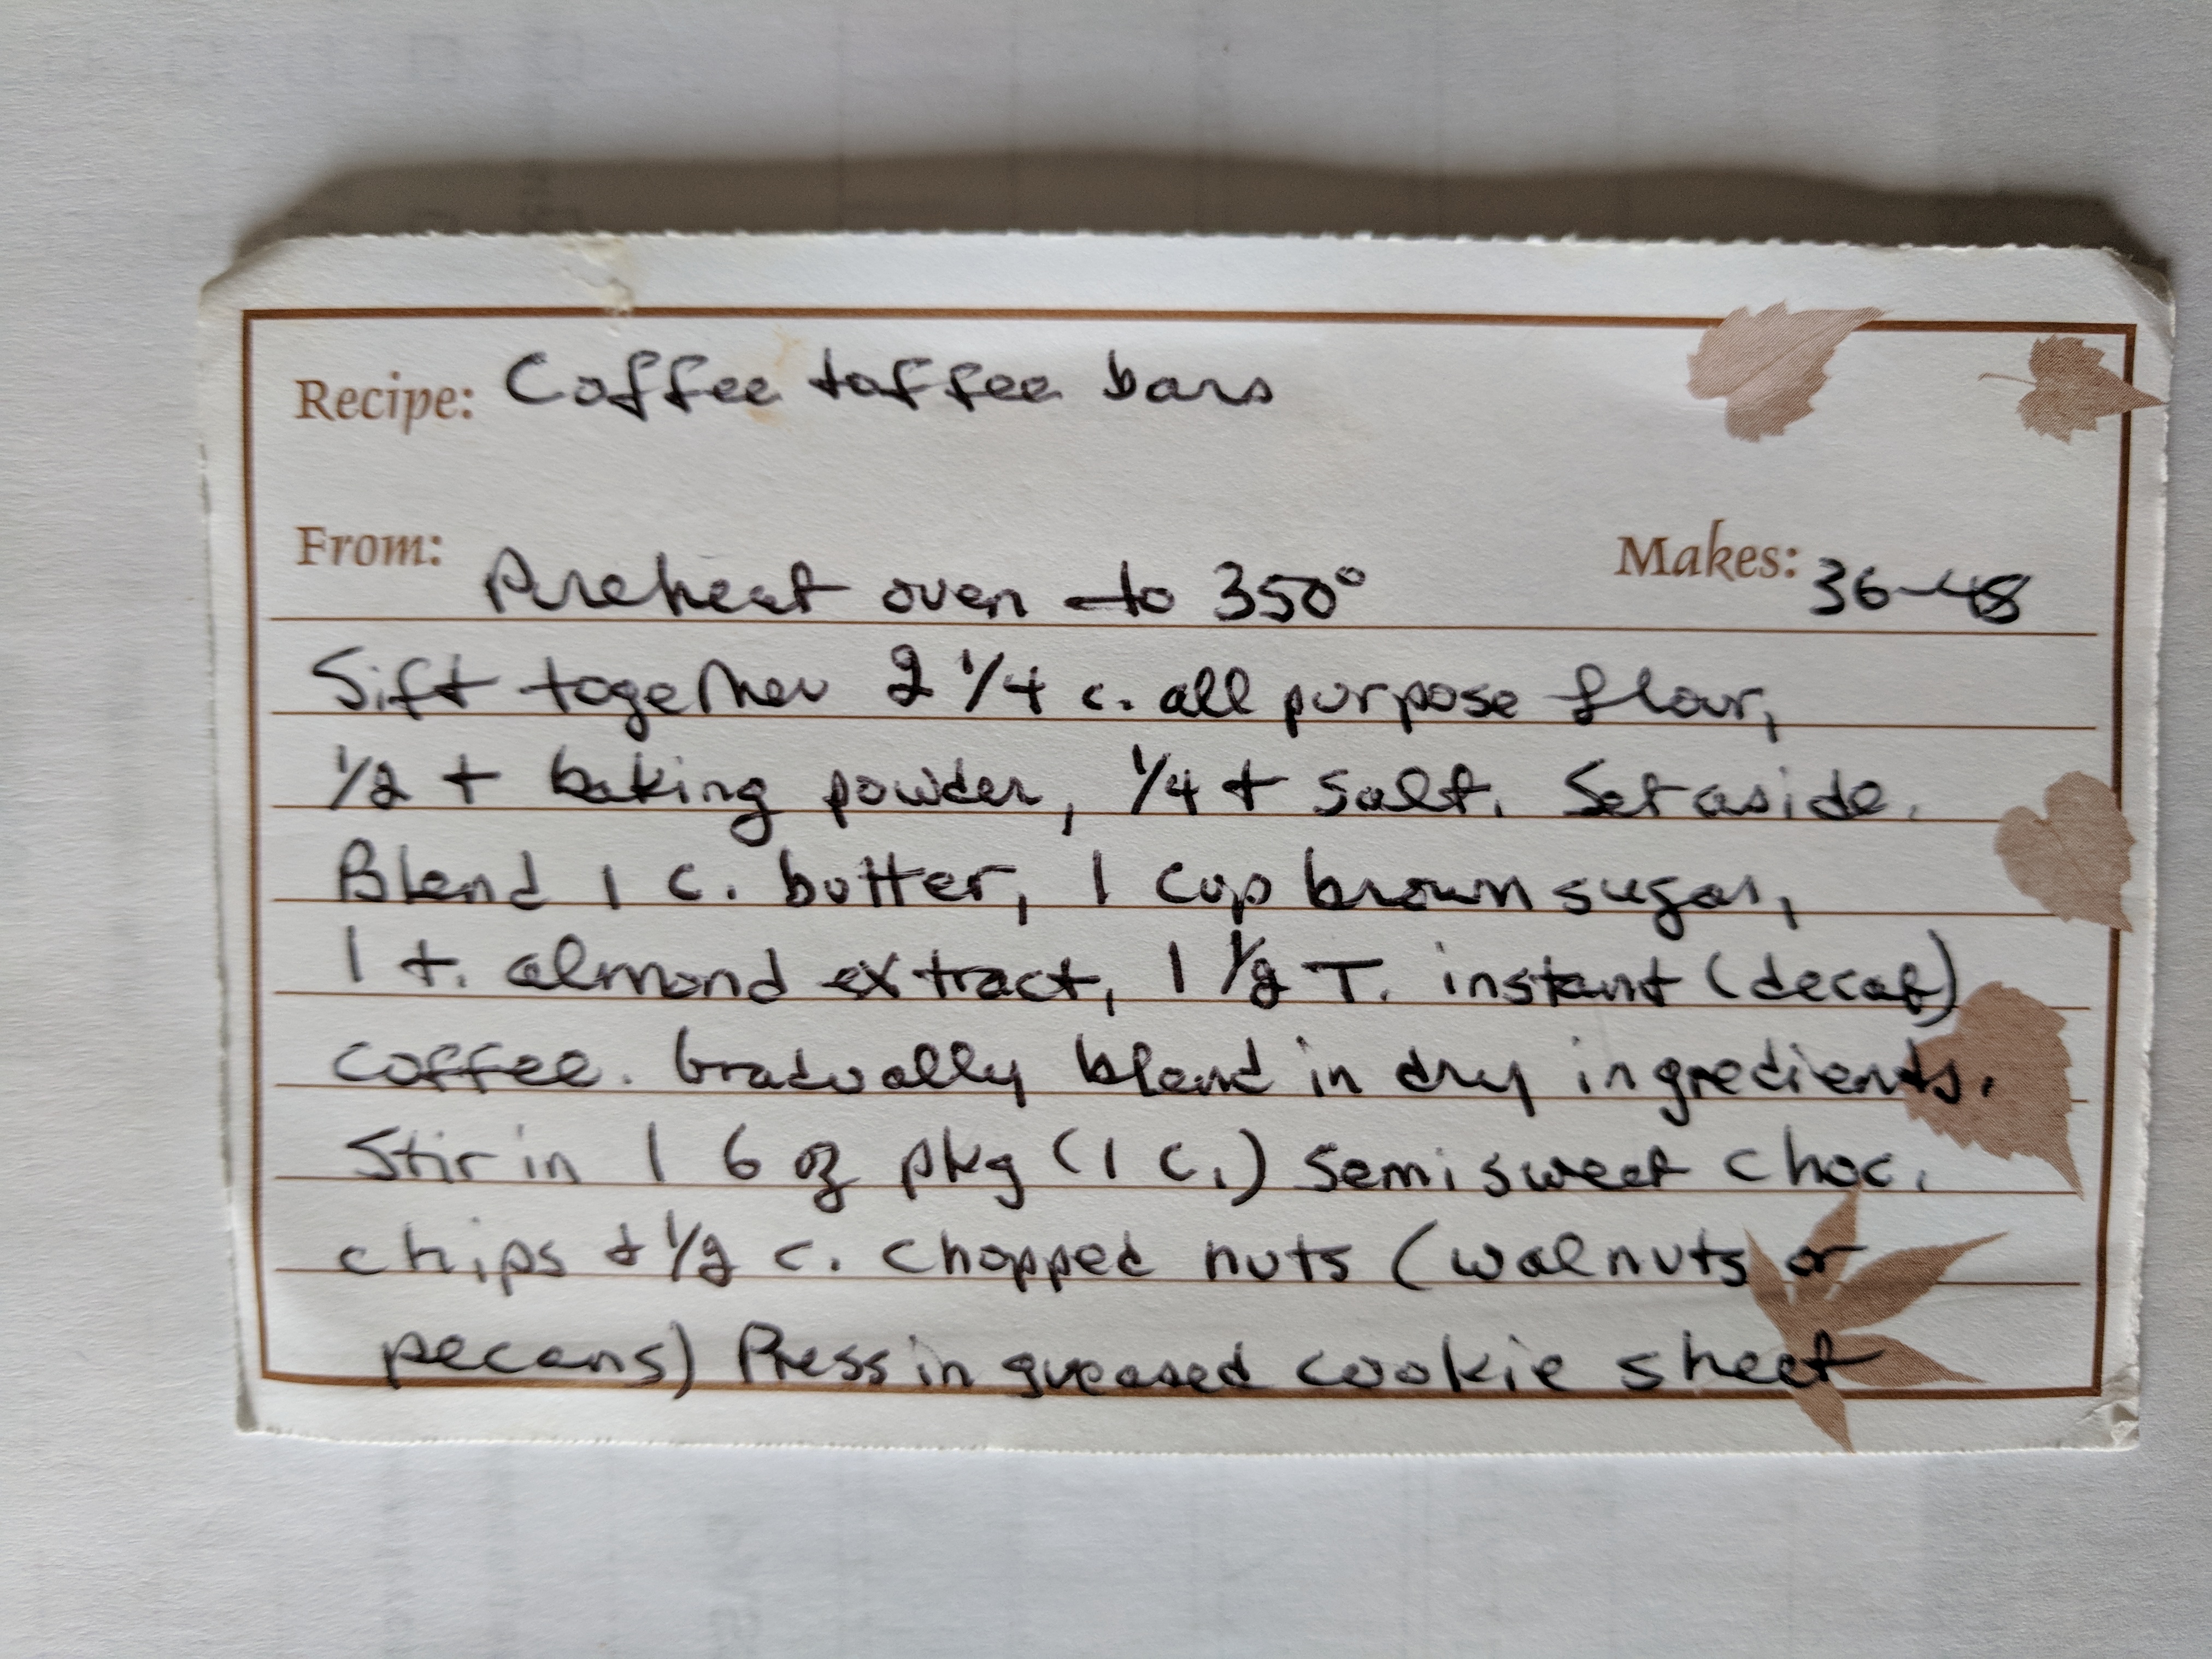 Recipe: Coffee toffee bars
From: Makes: 36-48
Preheat oven to 350°
Sift together 2 1/4 c. all purpose flour,
1/2 t baking powder, 1/4 t salt. Set aside.
Blend 1 c. butter, 1 cup brown sugar,
1 t. almond extract, 1 1/2 T. instant (decaf)
coffee. Gradually blend in dry ingredients.
Stir in 1 6 oz pkg (1 c.) semisweet choc.
chips + 1/2 c. chopped nuts (walnuts or
pecans) Press in greased cookie sheet